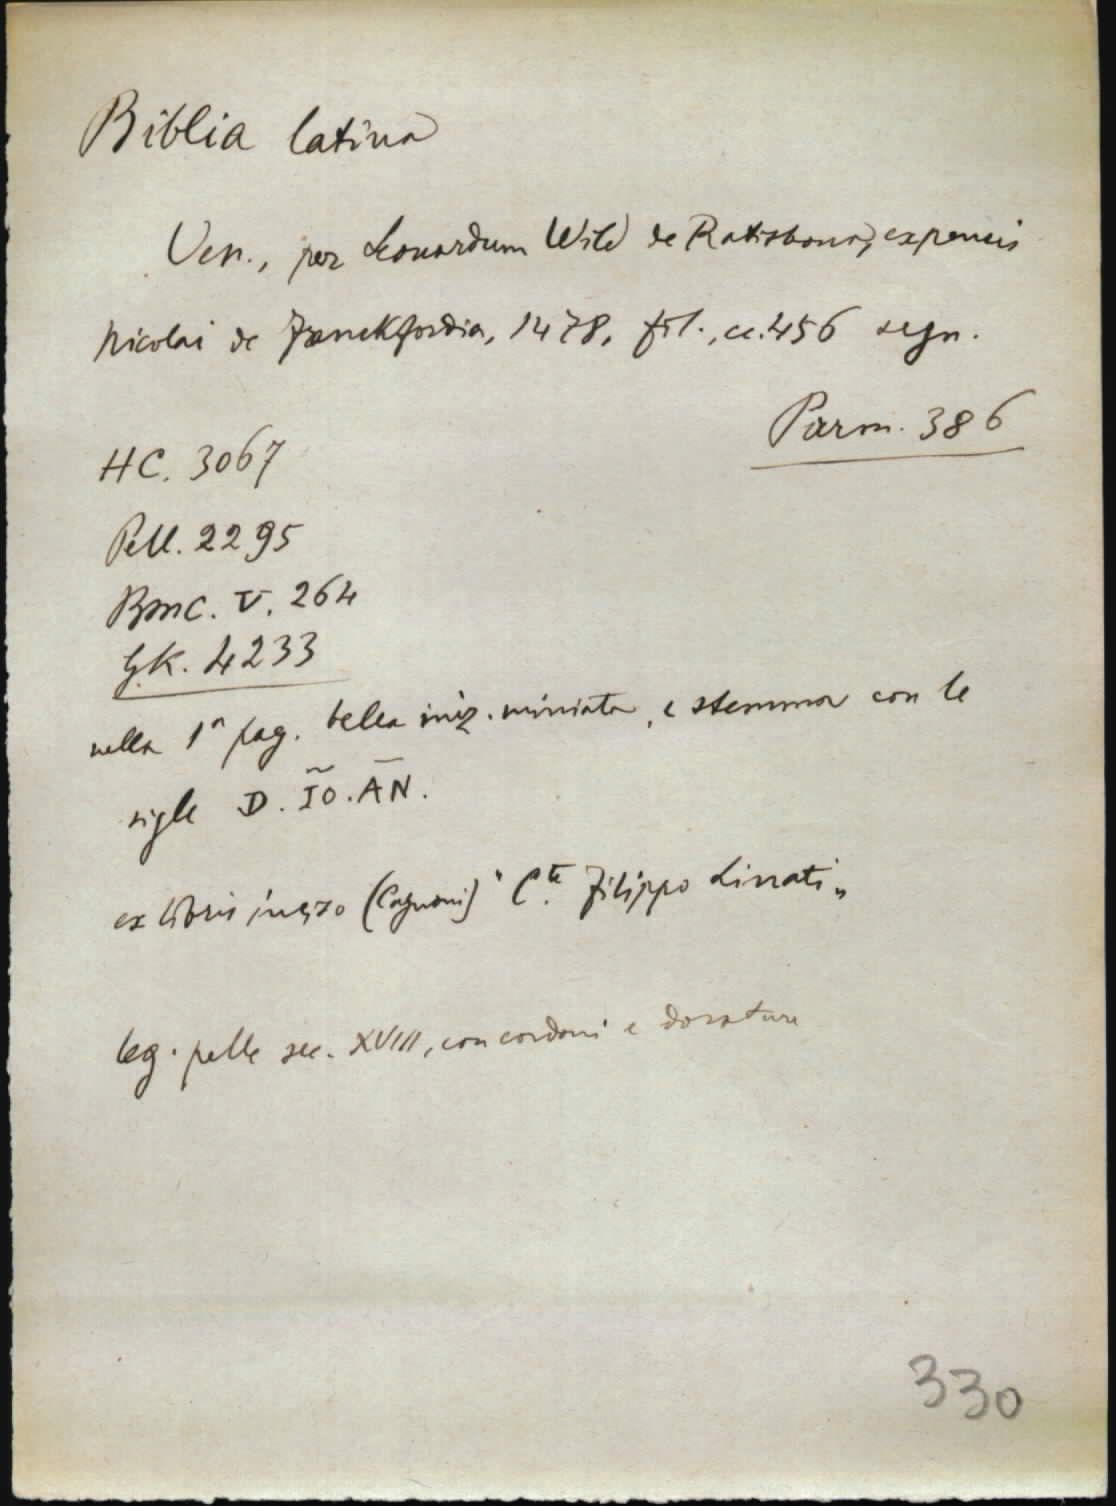 Biblia latina
Ven., per Leonardum Wild de Ratisbona, expensis
Nicolai de Franckfordia, 1478, fol., cc. 456 segn.
Parm. 386
HC. 3067
Pell. 2295
BMC. V. 264
GK. 4233
nella 1ª pag. bella iniz. miniata, e stemma con le
sigle D. IÕ. ĀN.
ex libris inciso (Cagnoni) "C.te Filippo Linati"
leg. pelle sec. XVIII, con cordoni e dorature
330